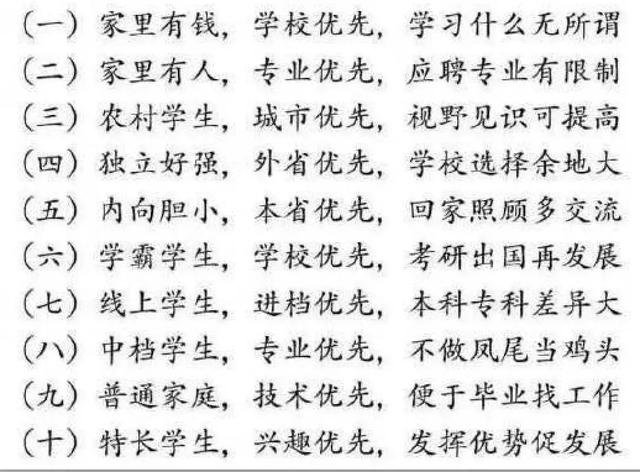 （一）家里有钱，学校优先，学习什么无所谓
（二）家里有人，专业优先，应聘专业有限制
（三）农村学生，城市优先，视野见识可提高
（四）独立好强，外省优先，学校选择余地大
（五）内向胆小，本省优先，回家照顾多交流
（六）学霸学生，学校优先，考研出国再发展
（七）线上学生，进档优先，本科专科差异大
（八）中档学生，专业优先，不做凤尾当鸡头
（九）普通家庭，技术优先，便于毕业找工作
（十）特长学生，兴趣优先，发挥优势促发展